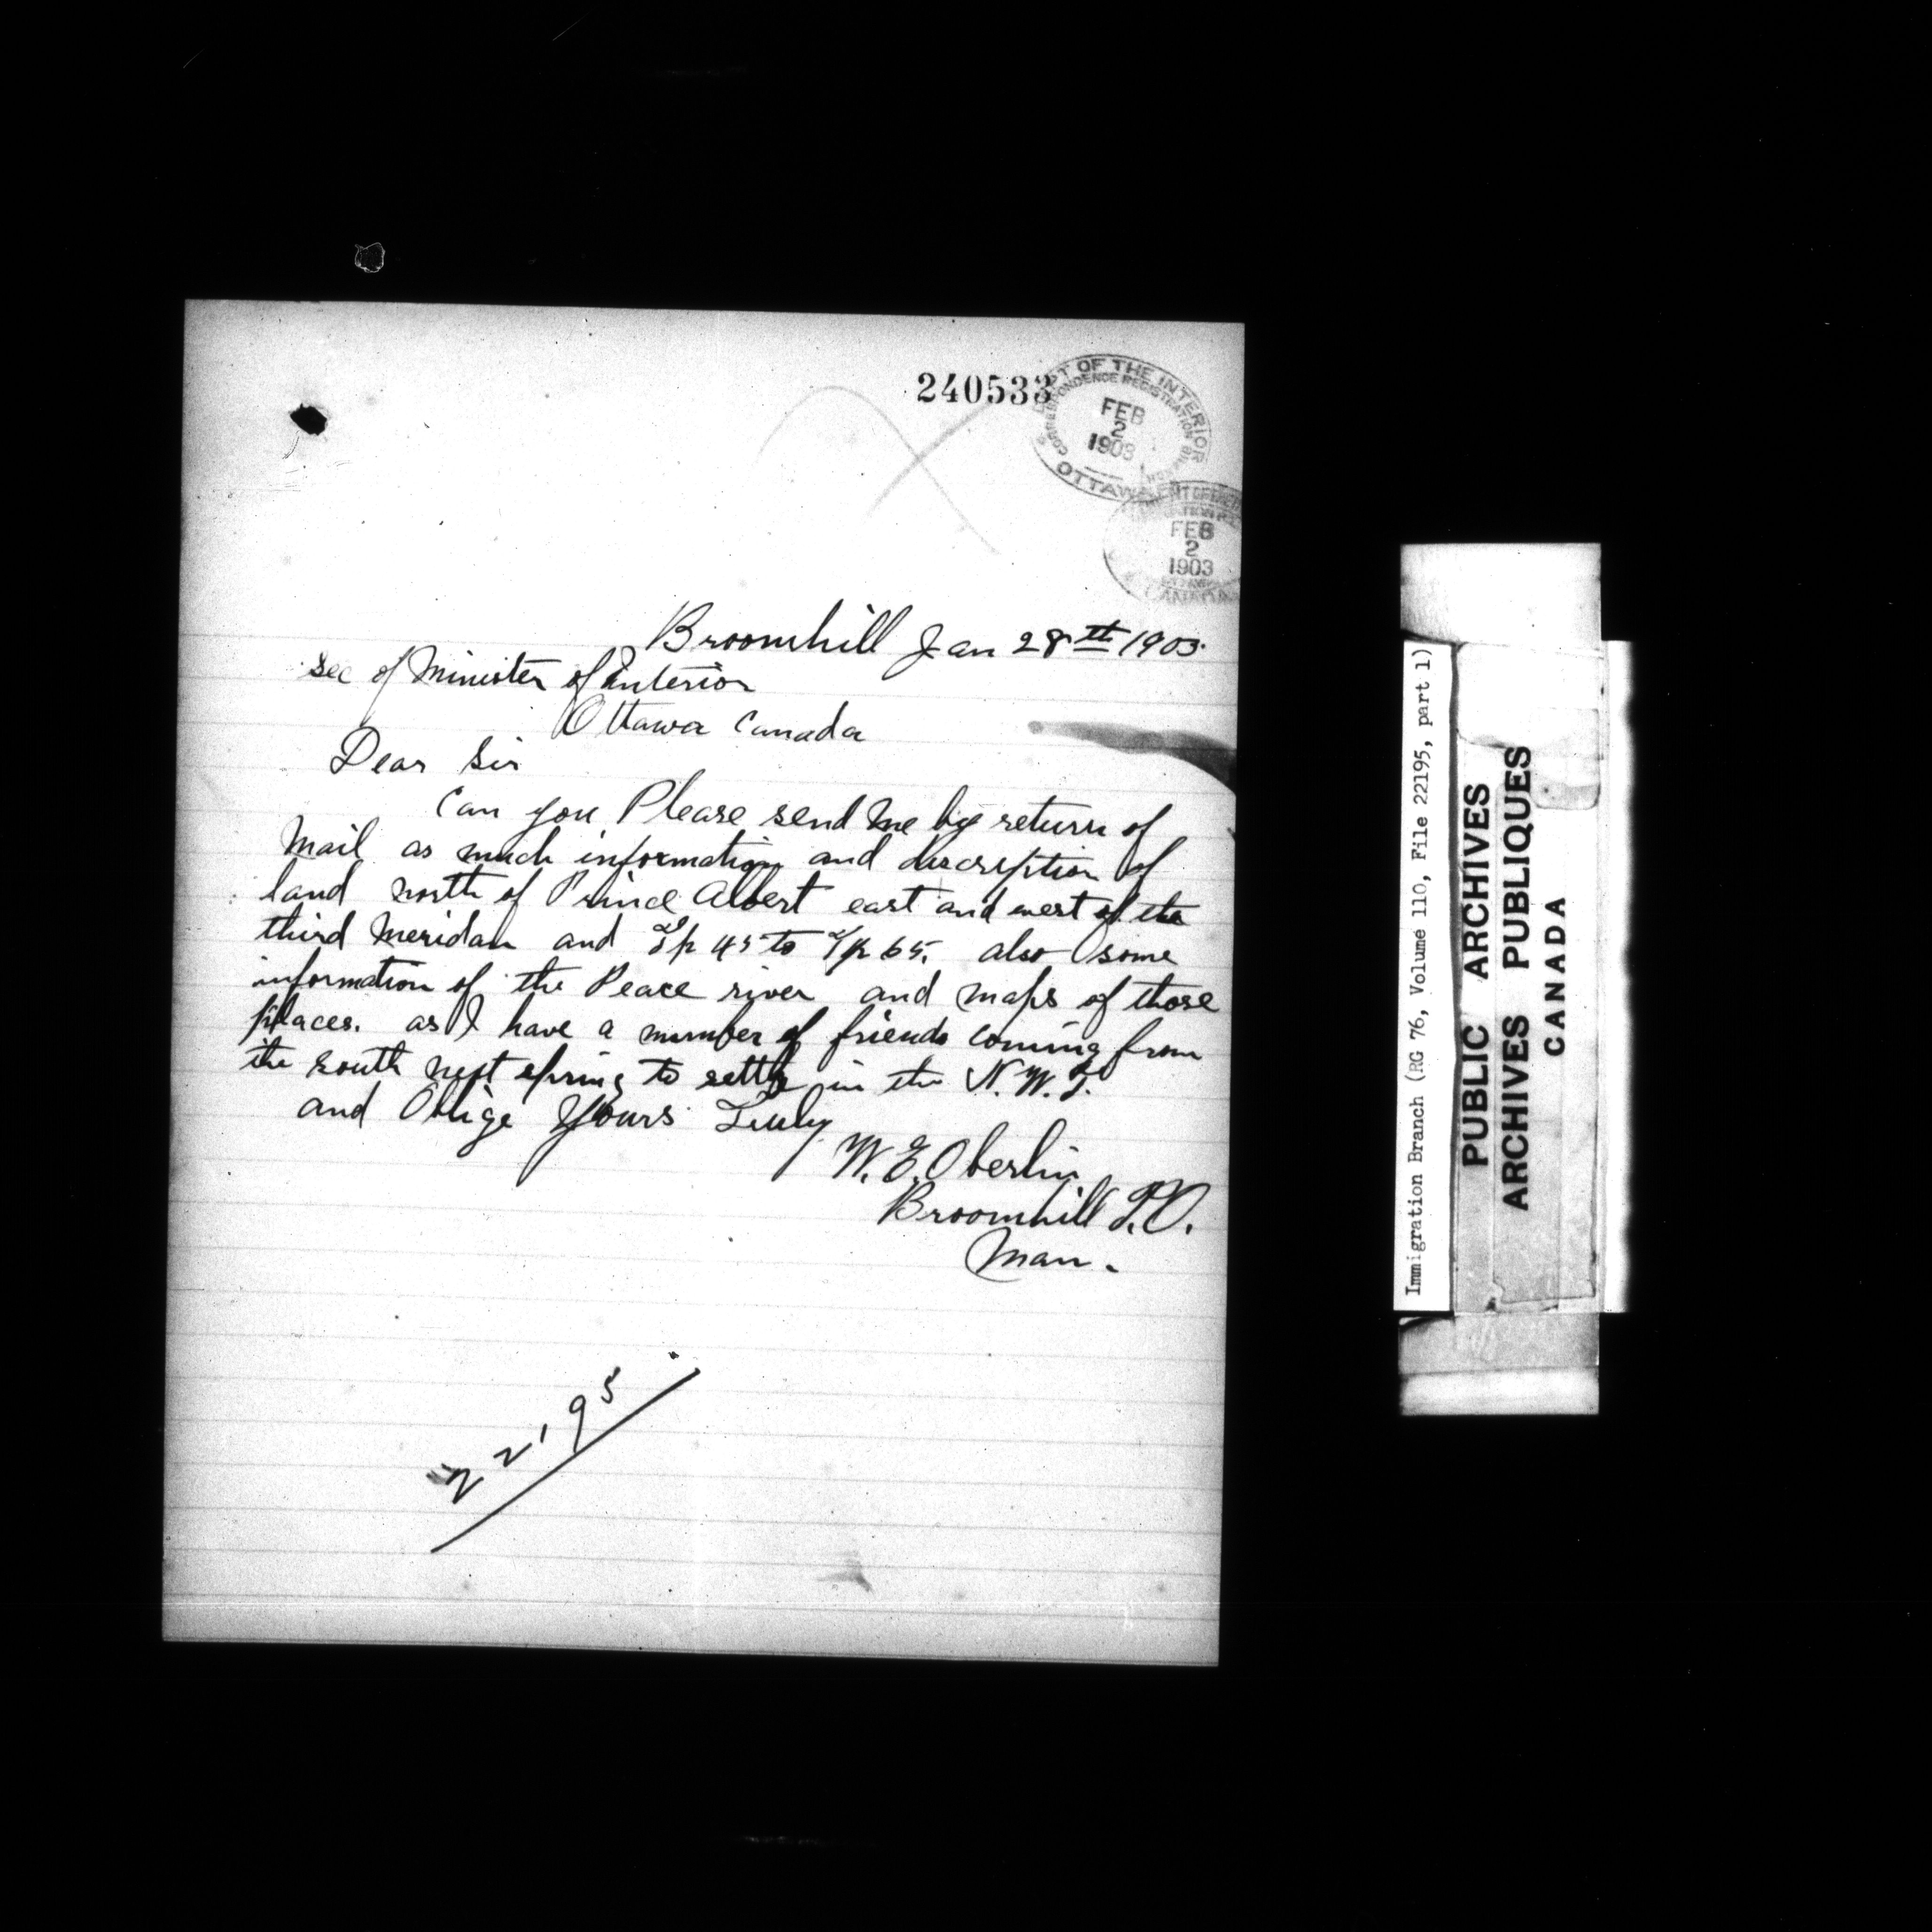 240533
DEPT OF THE INTERIOR
CORRESPONDENCE REGISTRATION BRANCH
FEB
2
1903
OTTAWA
FEB
2
1903
CANADA
Broomhill Jan 28th 1903.
Sec of Minister of Interior
Ottawa Canada
Dear Sir
Can you Please send me by return of
Mail as much information and discreption of
land north of Prince Albert east and west of the
third Meridan and Tp 45 to Tp 65. also some
information of the Peace river and maps of those
places. as I have a number of friends coming from
the south next spring to settle in the N.W.T.
and Oblige Yours Truly
W. E. Oberlin
Broomhill P.O.
Man.
22195
Immigration Branch (RG 76, Volume 110, File 22195, part 1)
PUBLIC ARCHIVES
ARCHIVES PUBLIQUES
CANADA